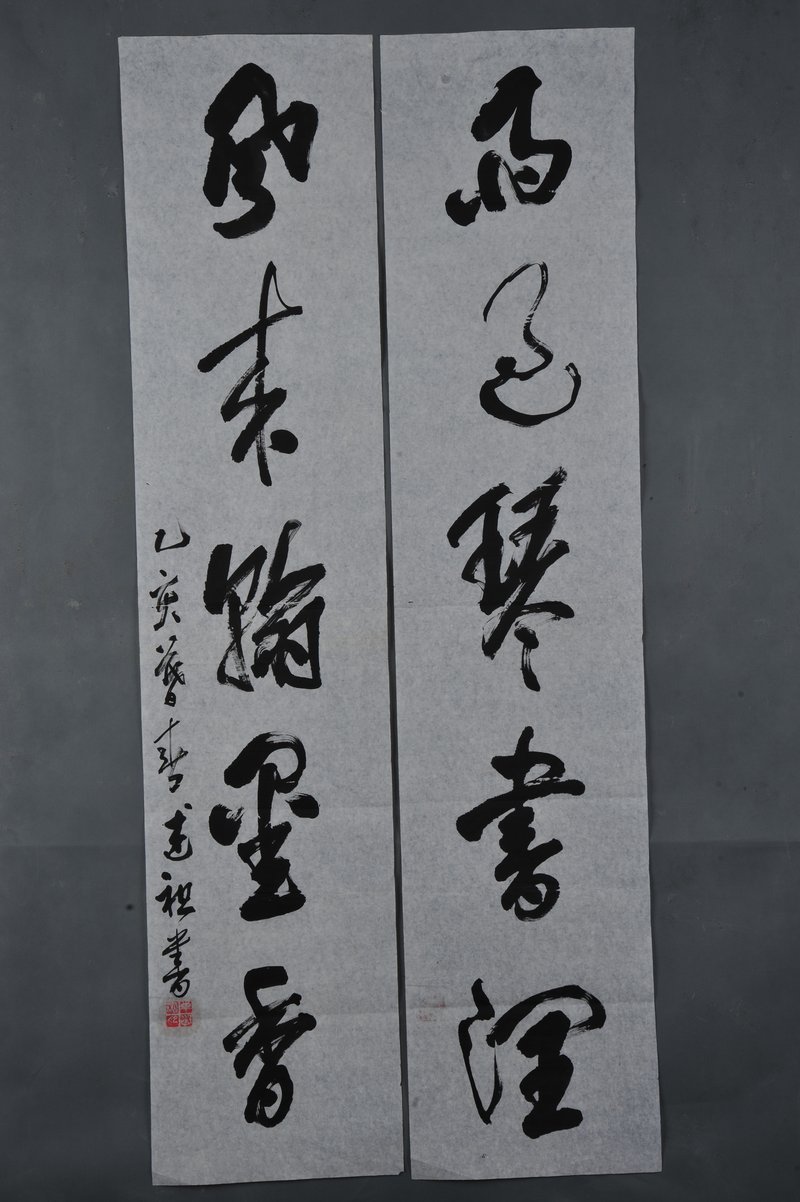 雨过琴书润
风来翰墨香
乙亥暮春 建祖书